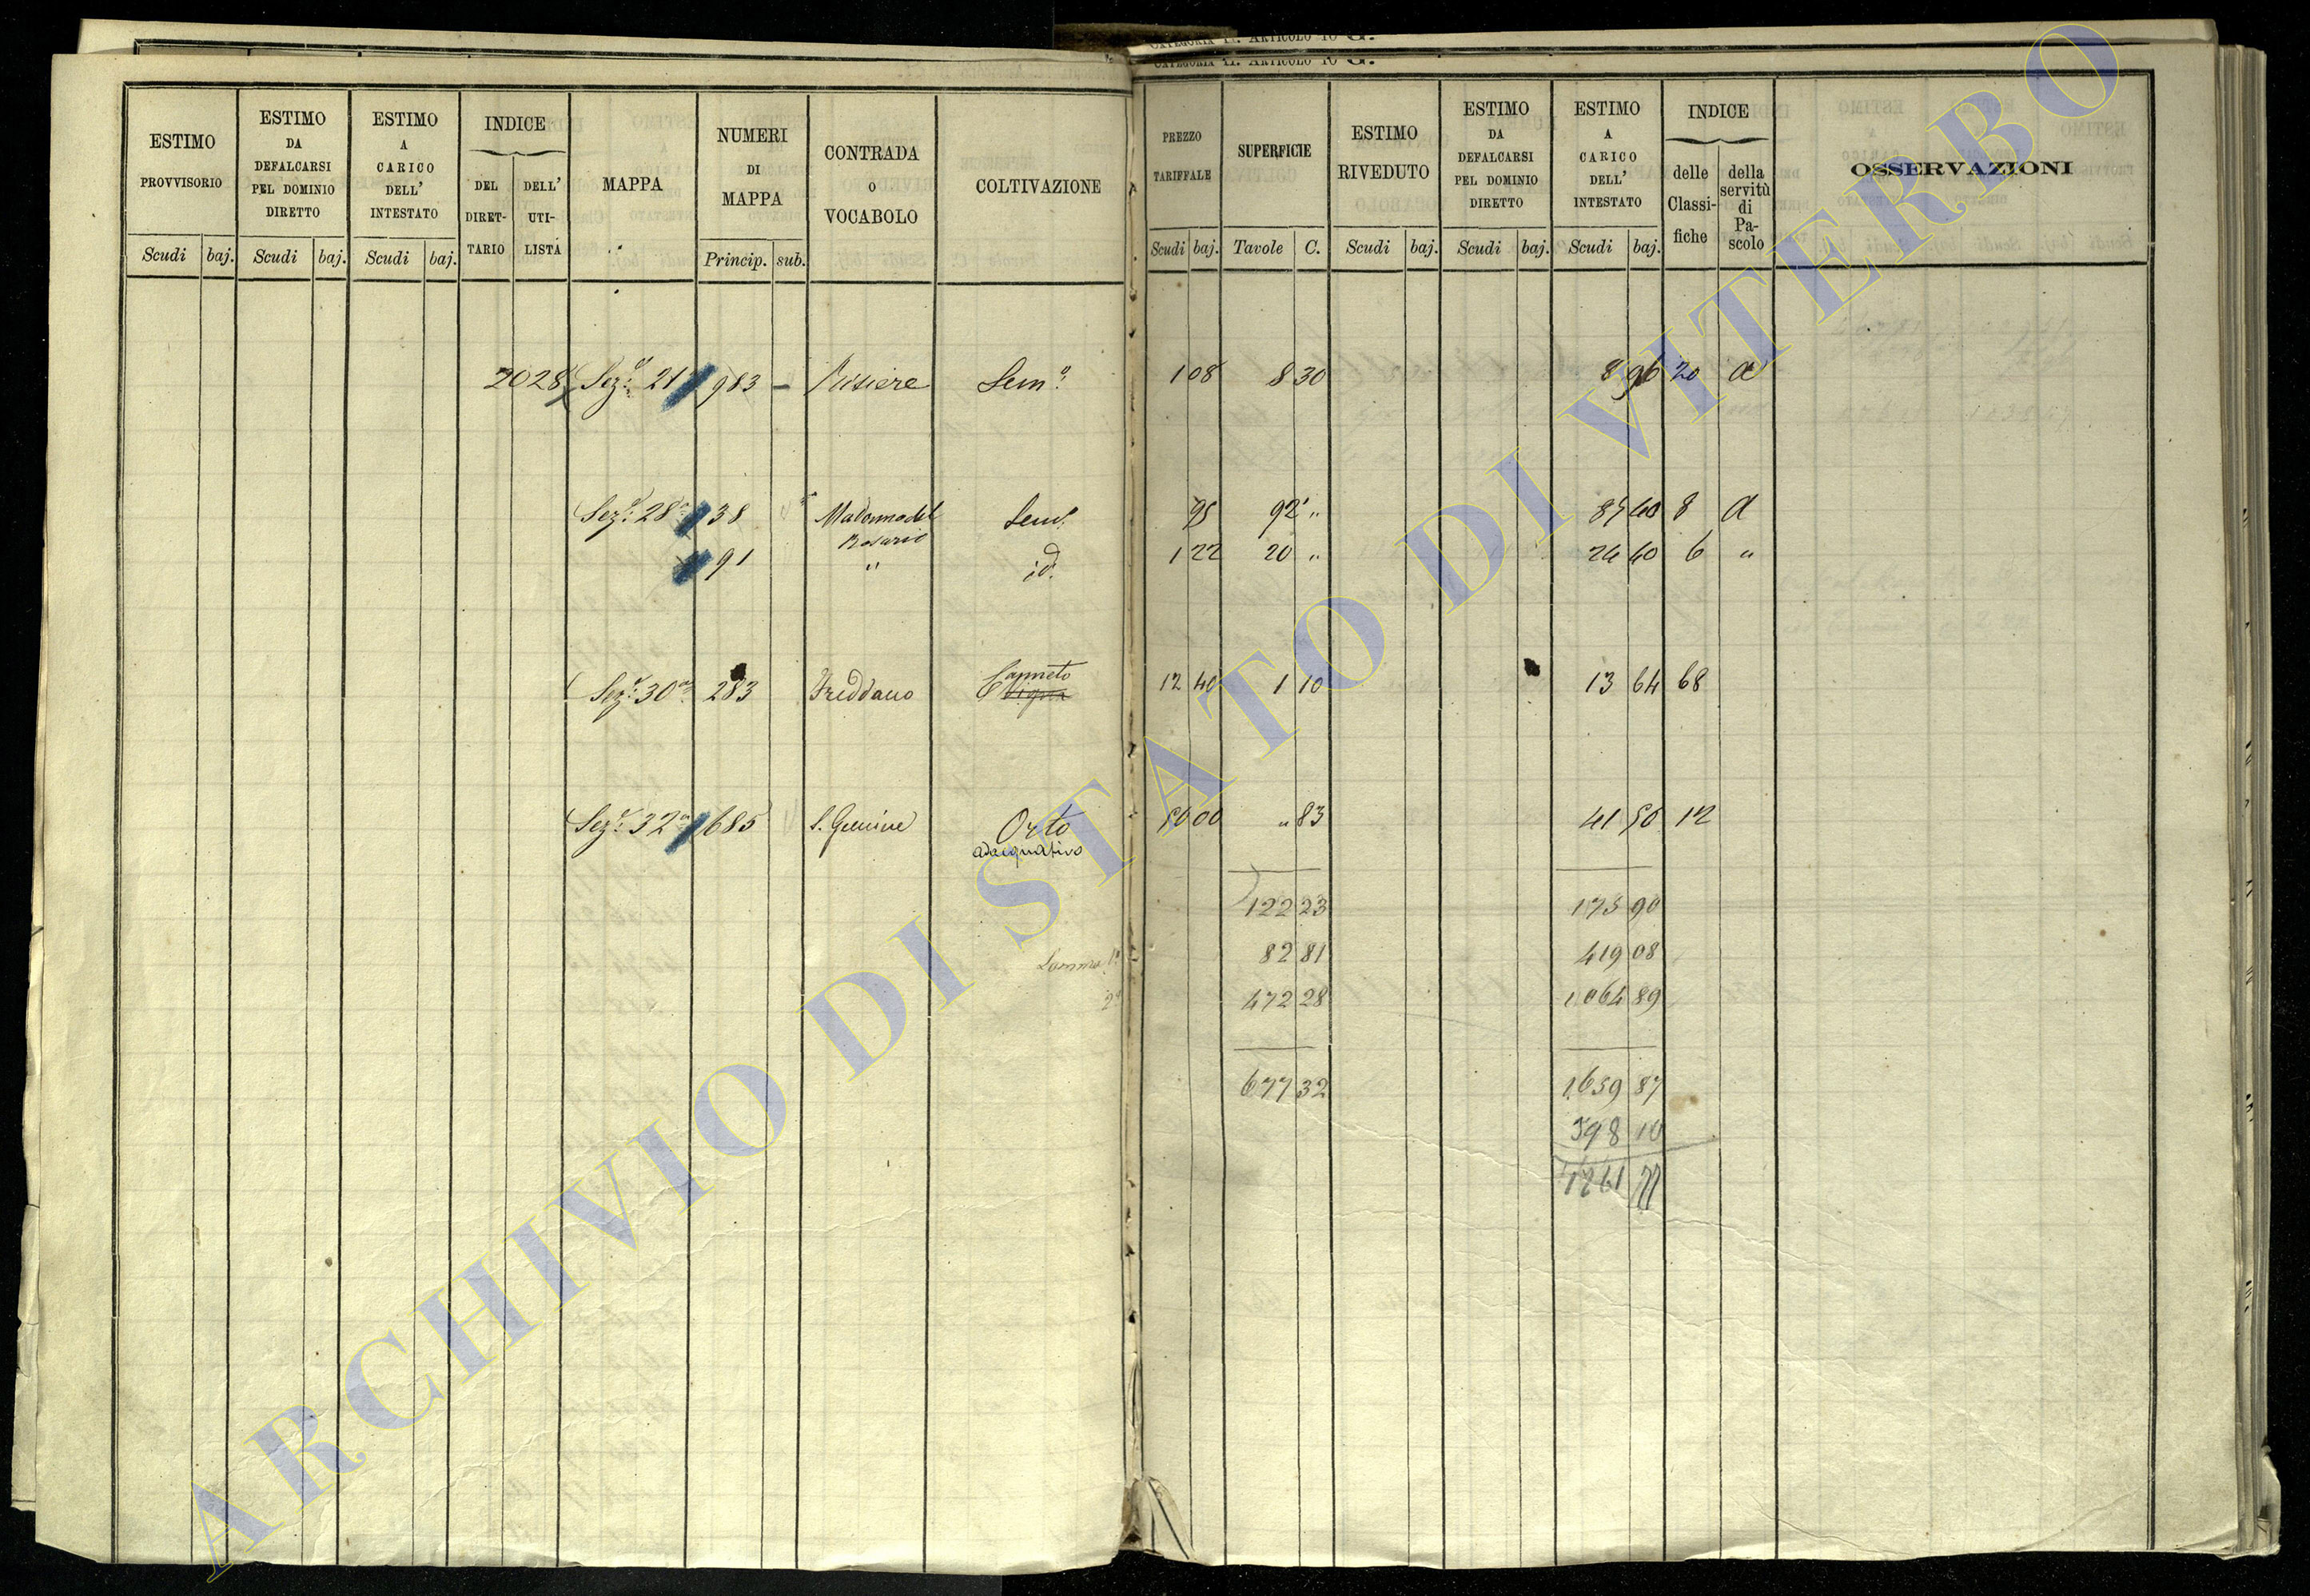 CATEGORIA II. ARTICOLO 10 G.
CATEGORIA II. ARTICOLO 10 G.
ESTIMO PROVVISORIO
Scudi baj.
ESTIMO DA DEFALCARSI PEL DOMINIO DIRETTO
Scudi baj.
ESTIMO A CARICO DELL' INTESTATO
Scudi baj.
INDICE
DEL DIRET-TARIO
DELL' UTI-LISTA
MAPPA
NUMERI DI MAPPA
Princip. sub.
CONTRADA O VOCABOLO
COLTIVAZIONE
PREZZO TARIFFALE
Scudi baj.
SUPERFICIE
Tavole C.
ESTIMO RIVEDUTO
Scudi baj.
ESTIMO DA DEFALCARSI PEL DOMINIO DIRETTO
Scudi baj.
ESTIMO A CARICO DELL' INTESTATO
Scudi baj.
INDICE
delle Classi-fiche
della servitù di Pa-scolo
OSSERVAZIONI
2028 Sez.e 21a 983 — Risiere Sem.o 1 08 8 30 8 96 20 a
Sez.e 28a 38 Madonna del Rosario Sem.o 95 92 " 87 40 8 a
91 " id. 1 22 20 " 24 40 6 "
Sez.e 30a 283 Freddano Canneto Vigna 12 40 1 10 13 64 68
Sez.e 32a 685 S. Gemine Orto adacquativo 50 00 " 83 41 50 12
122 23 175 90
Somma 1a 82 81 419 08
2a 472 28 1064 89
677 32 1659 87
398 10
1261 77
ARCHIVIO DI STATO DI VITERBO